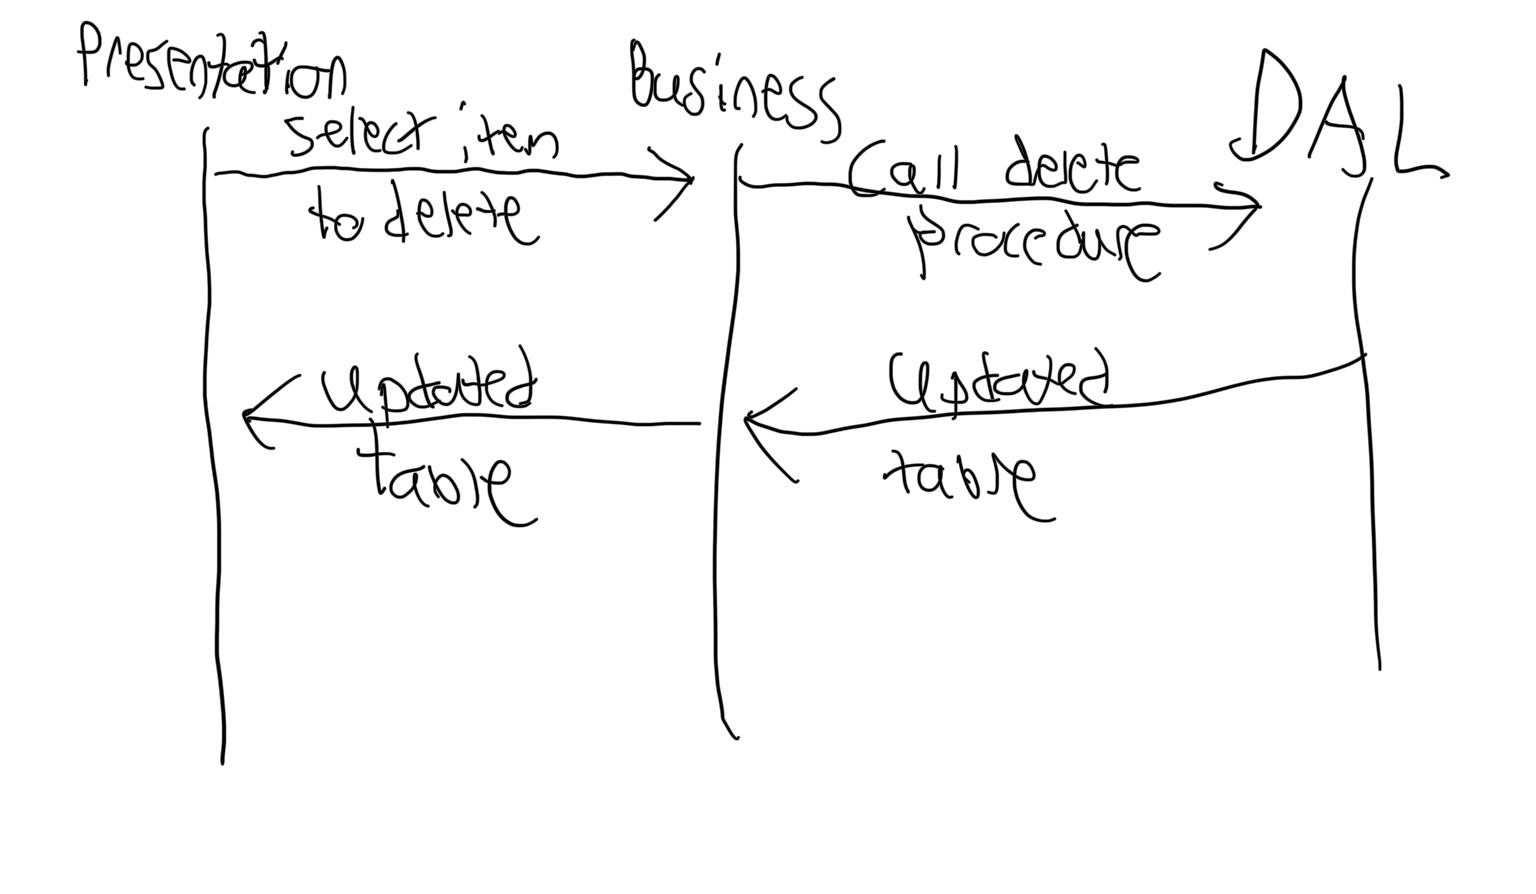 Presentation
Business
DAL
select item
to delete
Call delete
procedure
updated
table
Updated
table